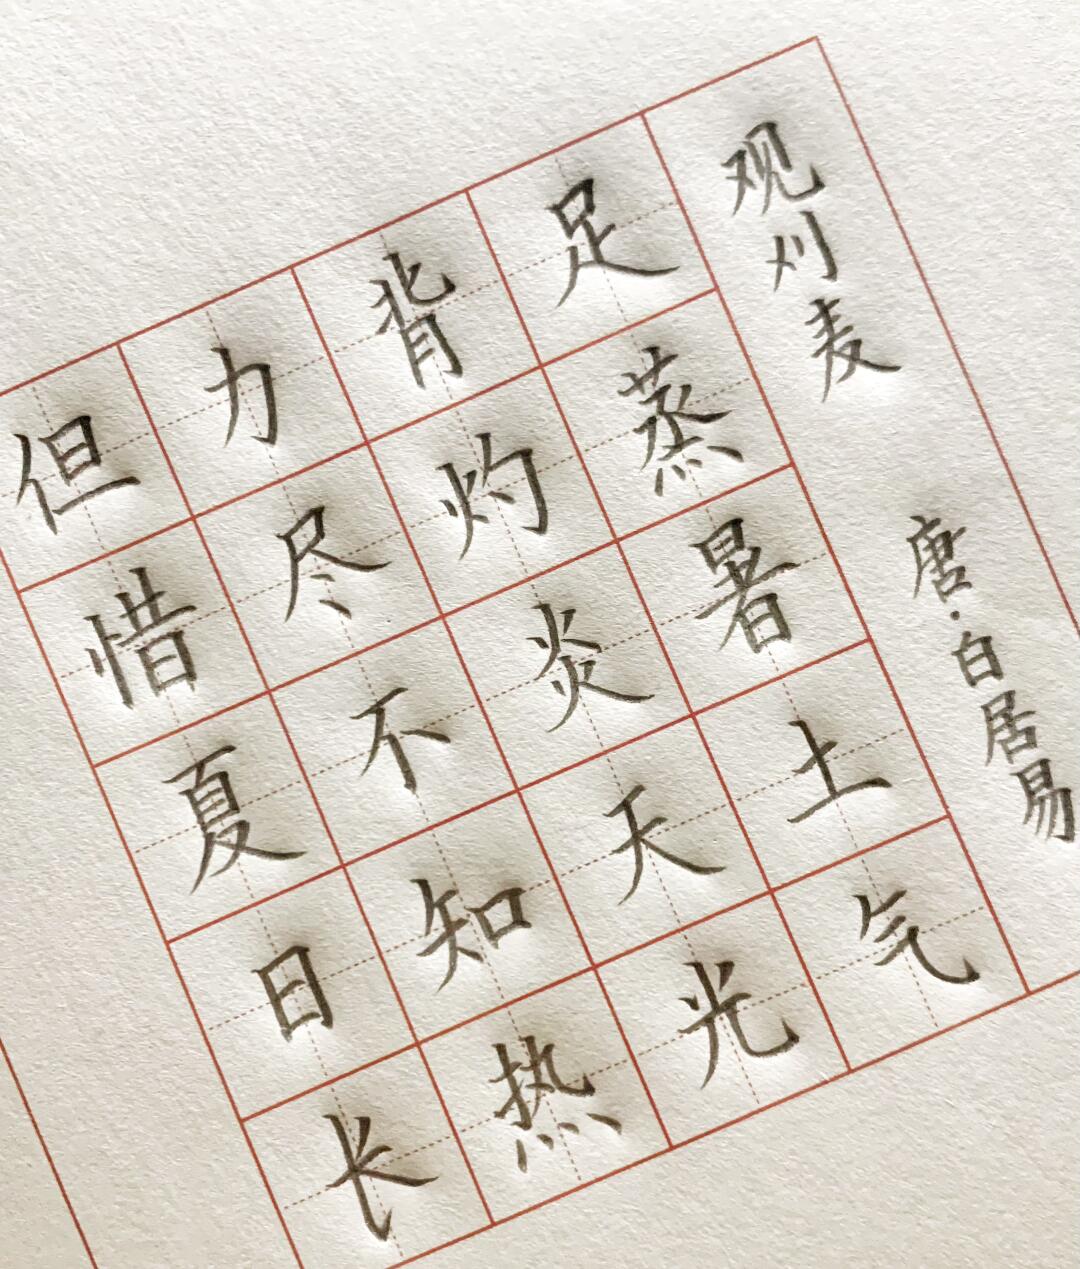 观刈麦
唐·白居易
足蒸暑土气
背灼炎天光
力尽不知热
但惜夏日长